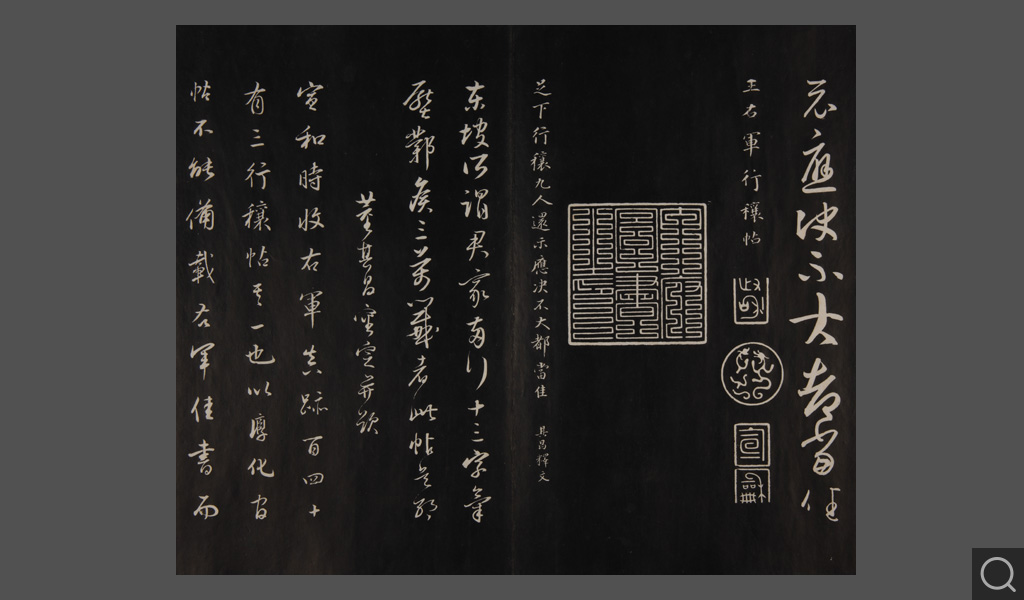 示應決不大都當佳
王右軍行穰帖
宣龢
足下行穰九人還示應決不大都當佳 其昌釋文
東坡所謂君家兩行十三字氣
壓鄴侯三萬籤者此帖是耶
董其昌審定并題
宣和時收右軍真跡百四十
有三行穰帖其一也以淳化官
帖不能備載右軍佳書而